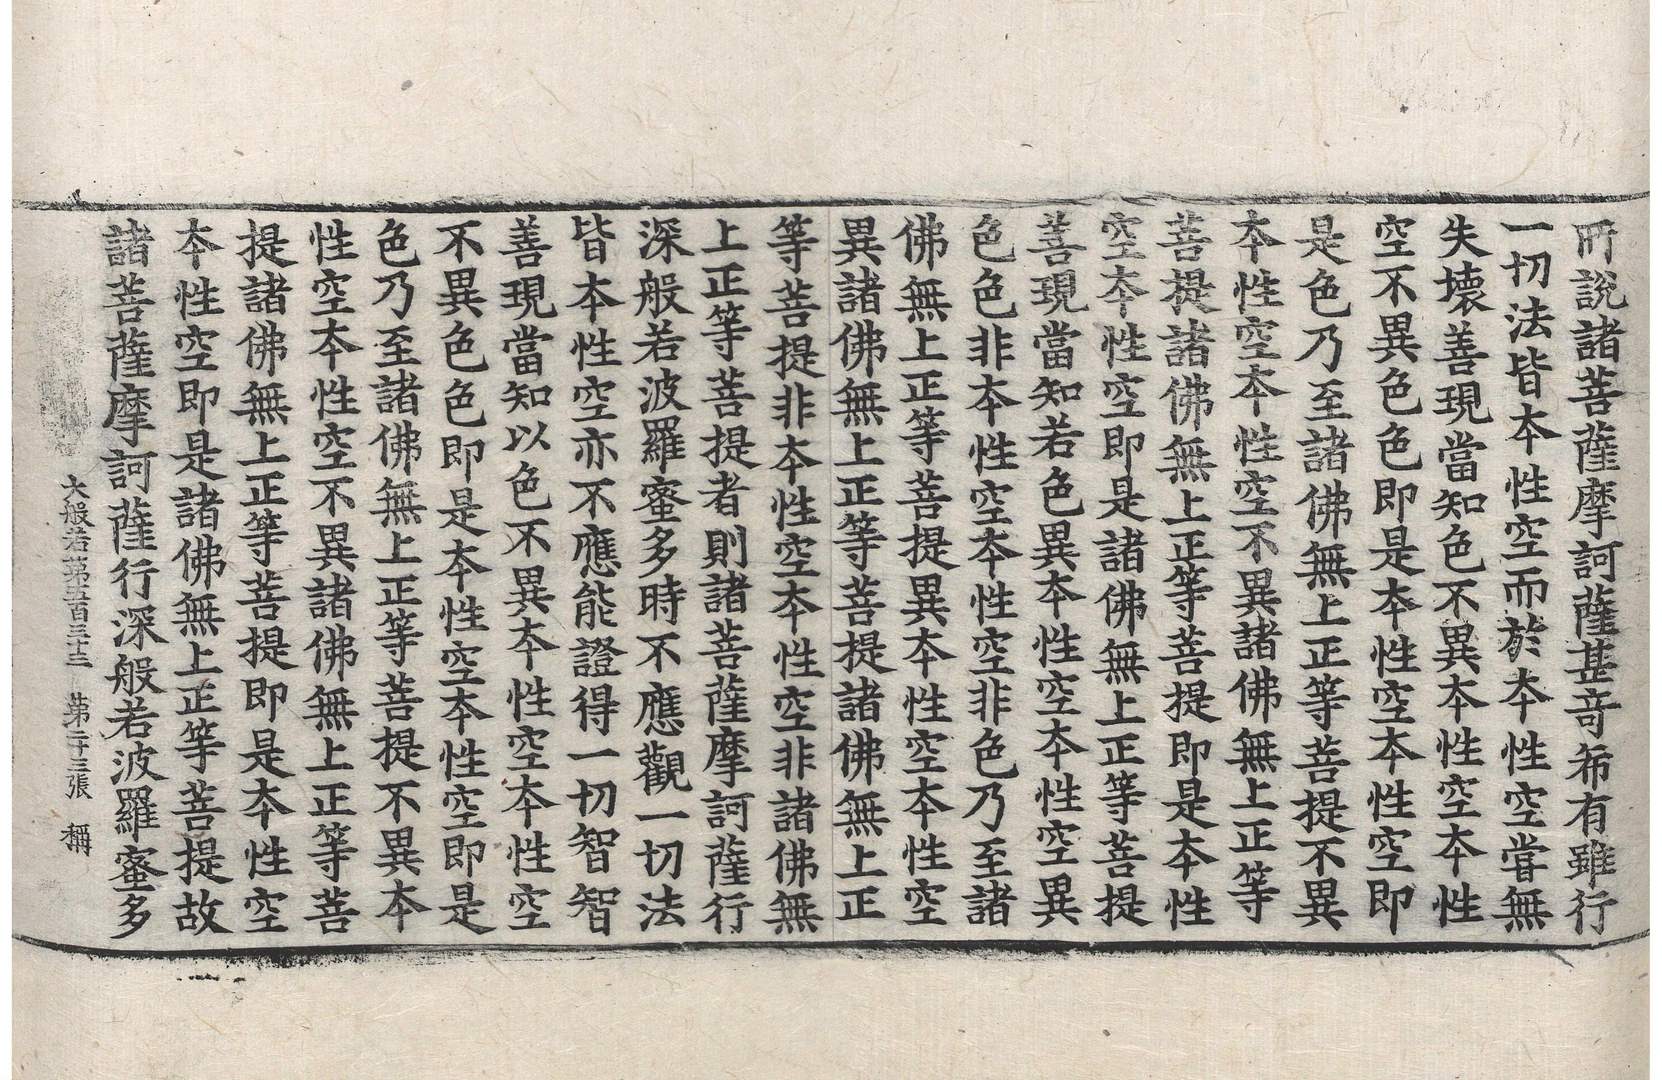 所說諸菩薩摩訶薩甚奇希有雖行
一切法皆本性空而於本性空甞無
失壞善現當知色不異本性空本性
空不異色色即是本性空本性空即
是色乃至諸佛無上正等菩提不異
本性空本性空不異諸佛無上正等
菩提諸佛無上正等菩提即是本性
空本性空即是諸佛無上正等菩提
善現當知若色異本性空本性空異
色色非本性空本性空非色乃至諸
佛無上正等菩提異本性空本性空
異諸佛無上正等菩提諸佛無上正
等菩提非本性空本性空非諸佛無
上正等菩提者則諸菩薩摩訶薩行
深般若波羅蜜多時不應觀一切法
皆本性空亦不應能證得一切智智
善現當知以色不異本性空本性空
不異色色即是本性空本性空即是
色乃至諸佛無上正等菩提不異本
性空本性空不異諸佛無上正等菩
提諸佛無上正等菩提即是本性空
本性空即是諸佛無上正等菩提故
諸菩薩摩訶薩行深般若波羅蜜多
大般若第五百三十三 第二十三張 稱